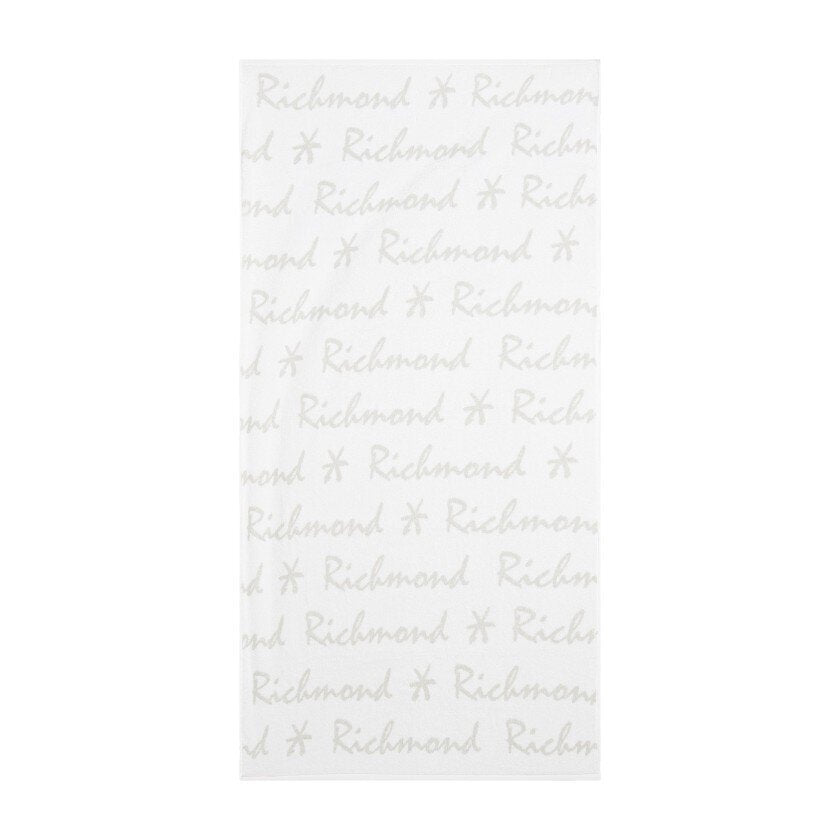 Richmond Richmon
nd Richmond Richm
ond Richmond Rich
mond Richmond
Richmond Richmond
d Richmond Richm
nd Richmond Rich
mond Richmond
Richmond Richmond
d Richmond Richm
ond Richmond Rich
Richmond Richmon
d Richmond Richm